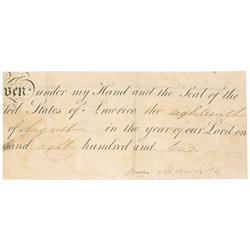 ven under my Hand and the Seal of the
ted States of America the eighteenth
of August in the year of our Lord on
sand eight hundred and
James